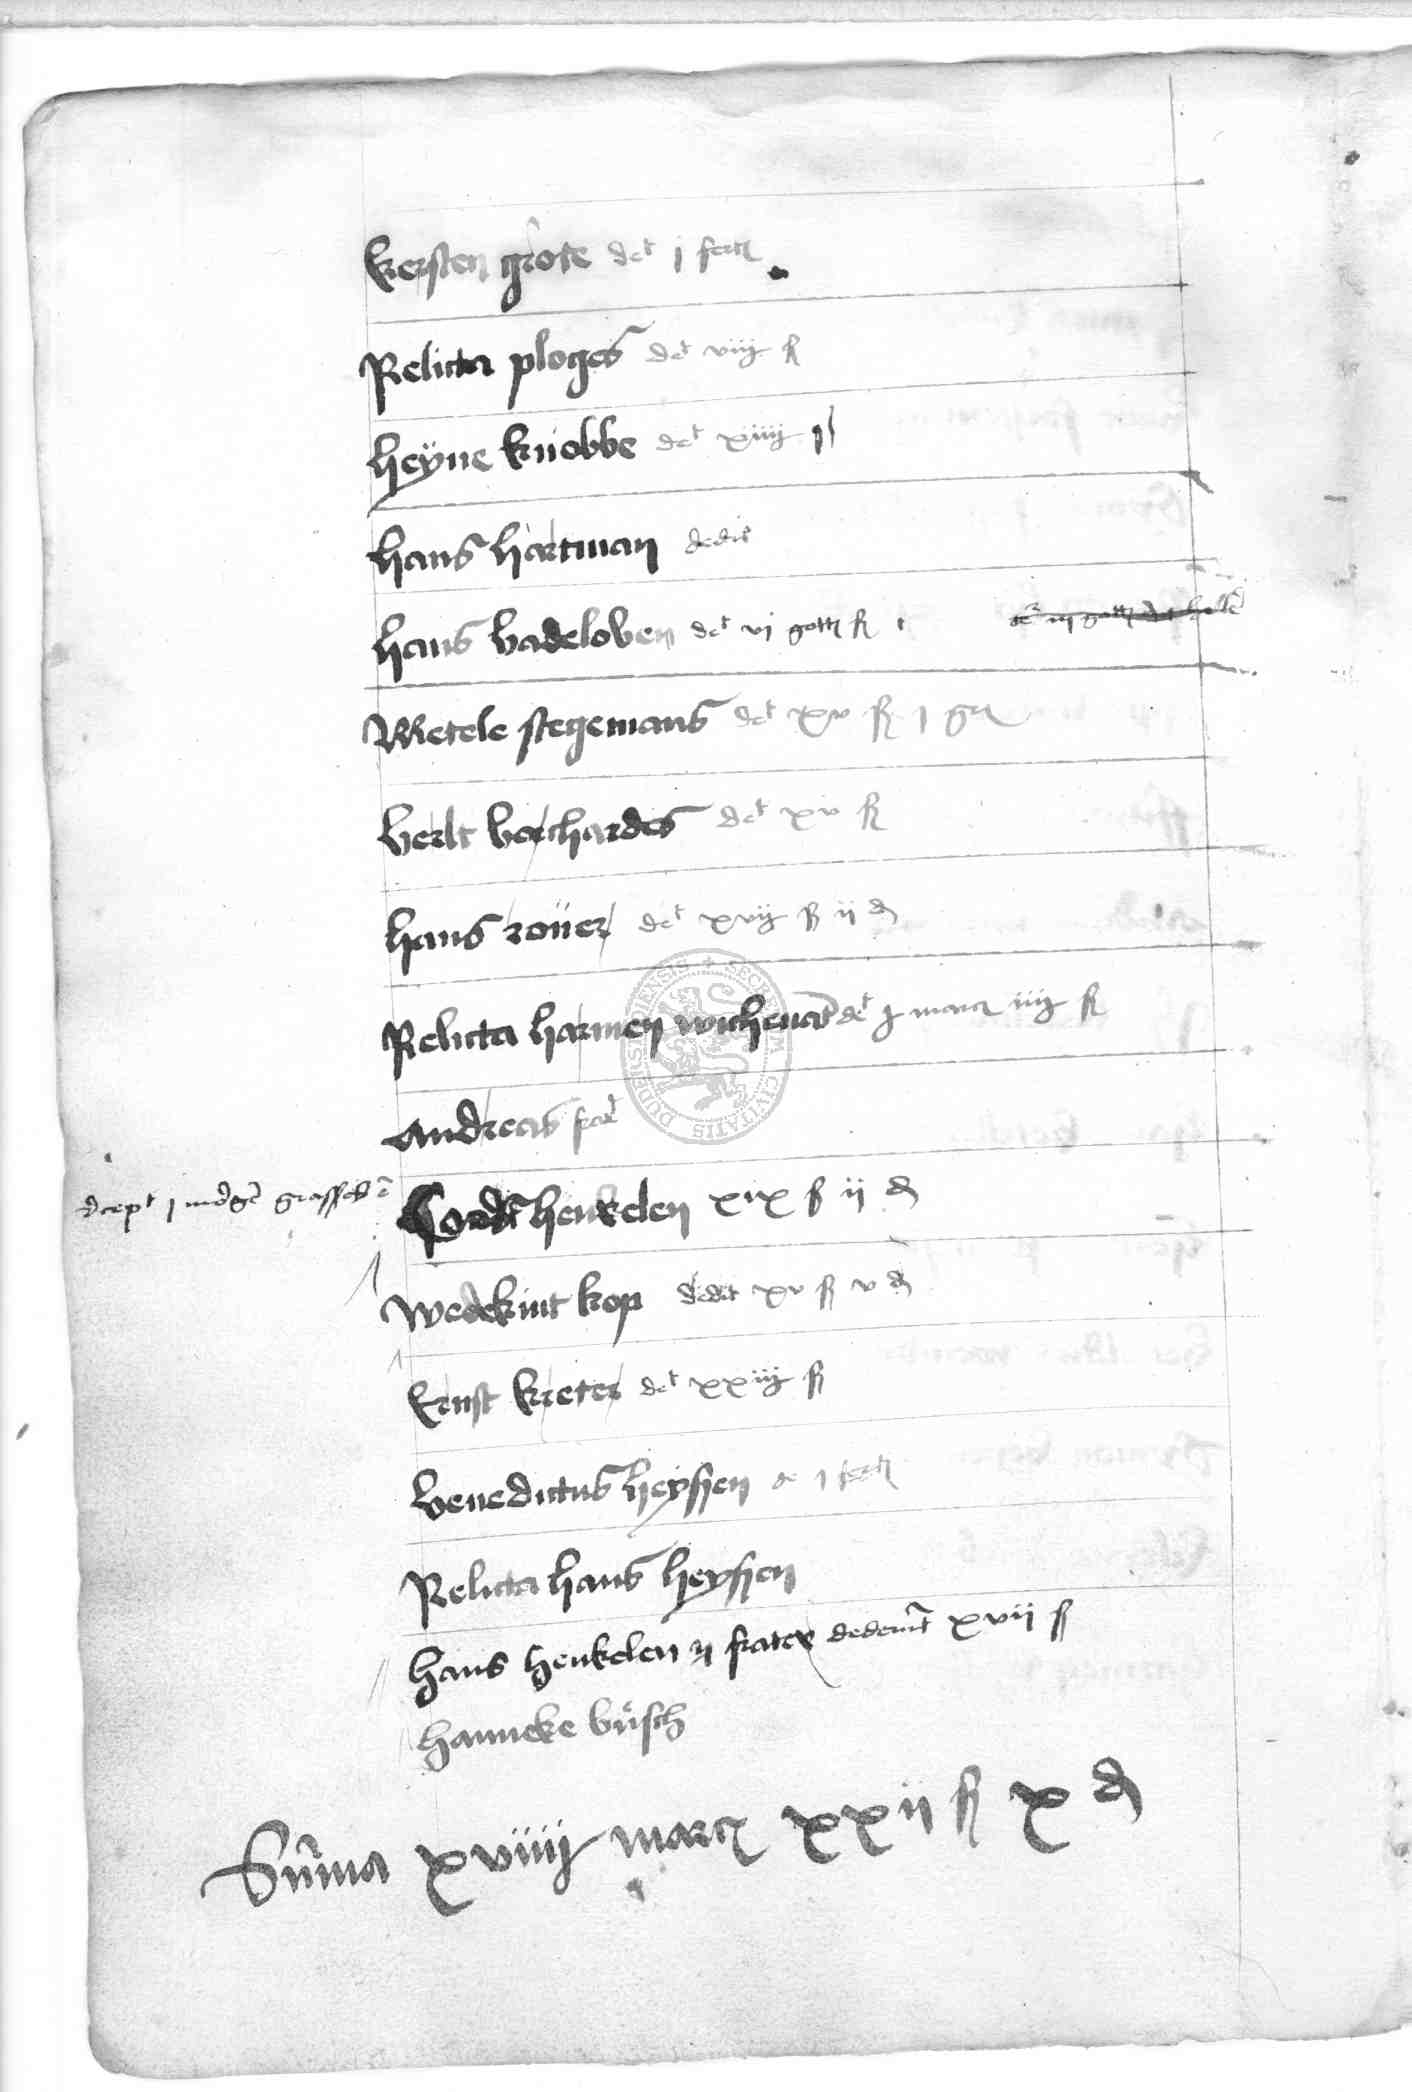 kersten grote det j fert
Relicta ploges det viij ß
heyne knobbe det xiiij ß
hans hartman dedit
hans badeloben det vj gott ß
Metele stegemans det xv ß j gr
berlt borchardes det xv ß
hans roüer det xvij ß ij d
Relicta harmen wichenant det j marc iiij ß
andreas frater
Cordt henkelen xix ß ij d
wedekint kop dedit xv ß v d
Ernst kreter det xxiij ß
benedictus heysen de j fert
Relicta hans heysen
hans henkelen frater dederunt xvij ß
hanneke büsch
Summa xviiij marc xxij ß x d
SECRETUM CIVITATIS DUDERSTADIENSIS